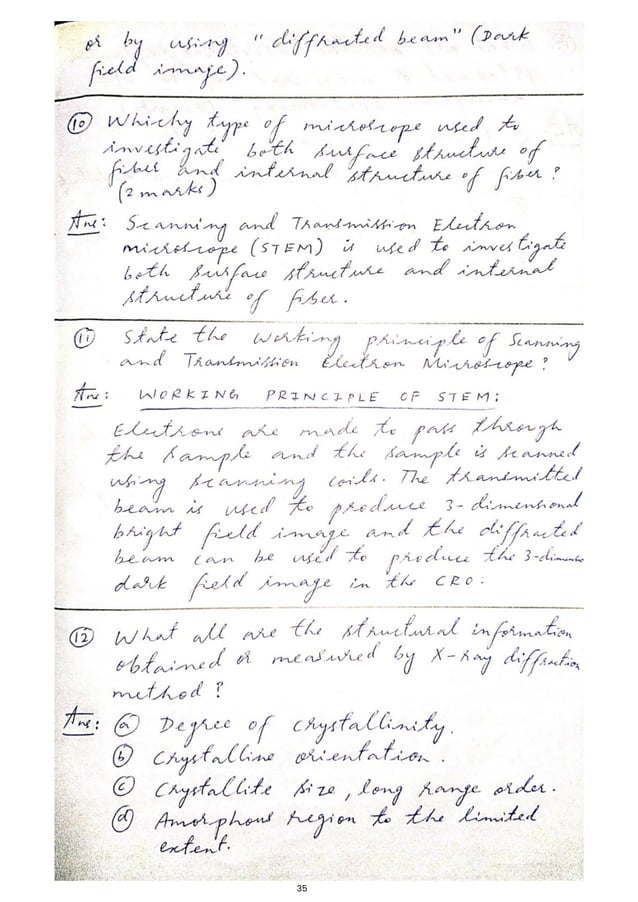 or by using "diffracted beam" (Dark
field image).
⑩ Whichy type of microscope used to
investigate both surface structure of
fiber and internal structure of fiber?
(2 marks)
Ans: Scanning and Transmission Electron
microscope (STEM) is used to investigate
both surface structure and internal
structure of fiber.
⑪ State the working principle of Scanning
and Transmission Electron Microscope?
Ans: WORKING PRINCIPLE OF STEM:
Electrons are made to pass through
the sample and the sample is scanned
using scanning coils. The transmitted
beam is used to produce 3-dimensional
bright field image and the diffracted
beam can be used to produce the 3-dimensio
dark field image in the CRO.
⑫ What all are the structural information
obtained or measured by X-ray diffraction
method?
Ans: ⓐ Degree of crystallinity.
ⓑ Crystalline orientation.
ⓒ Crystallite size, long range order.
ⓓ Amorphous region to the limited
extent.
35